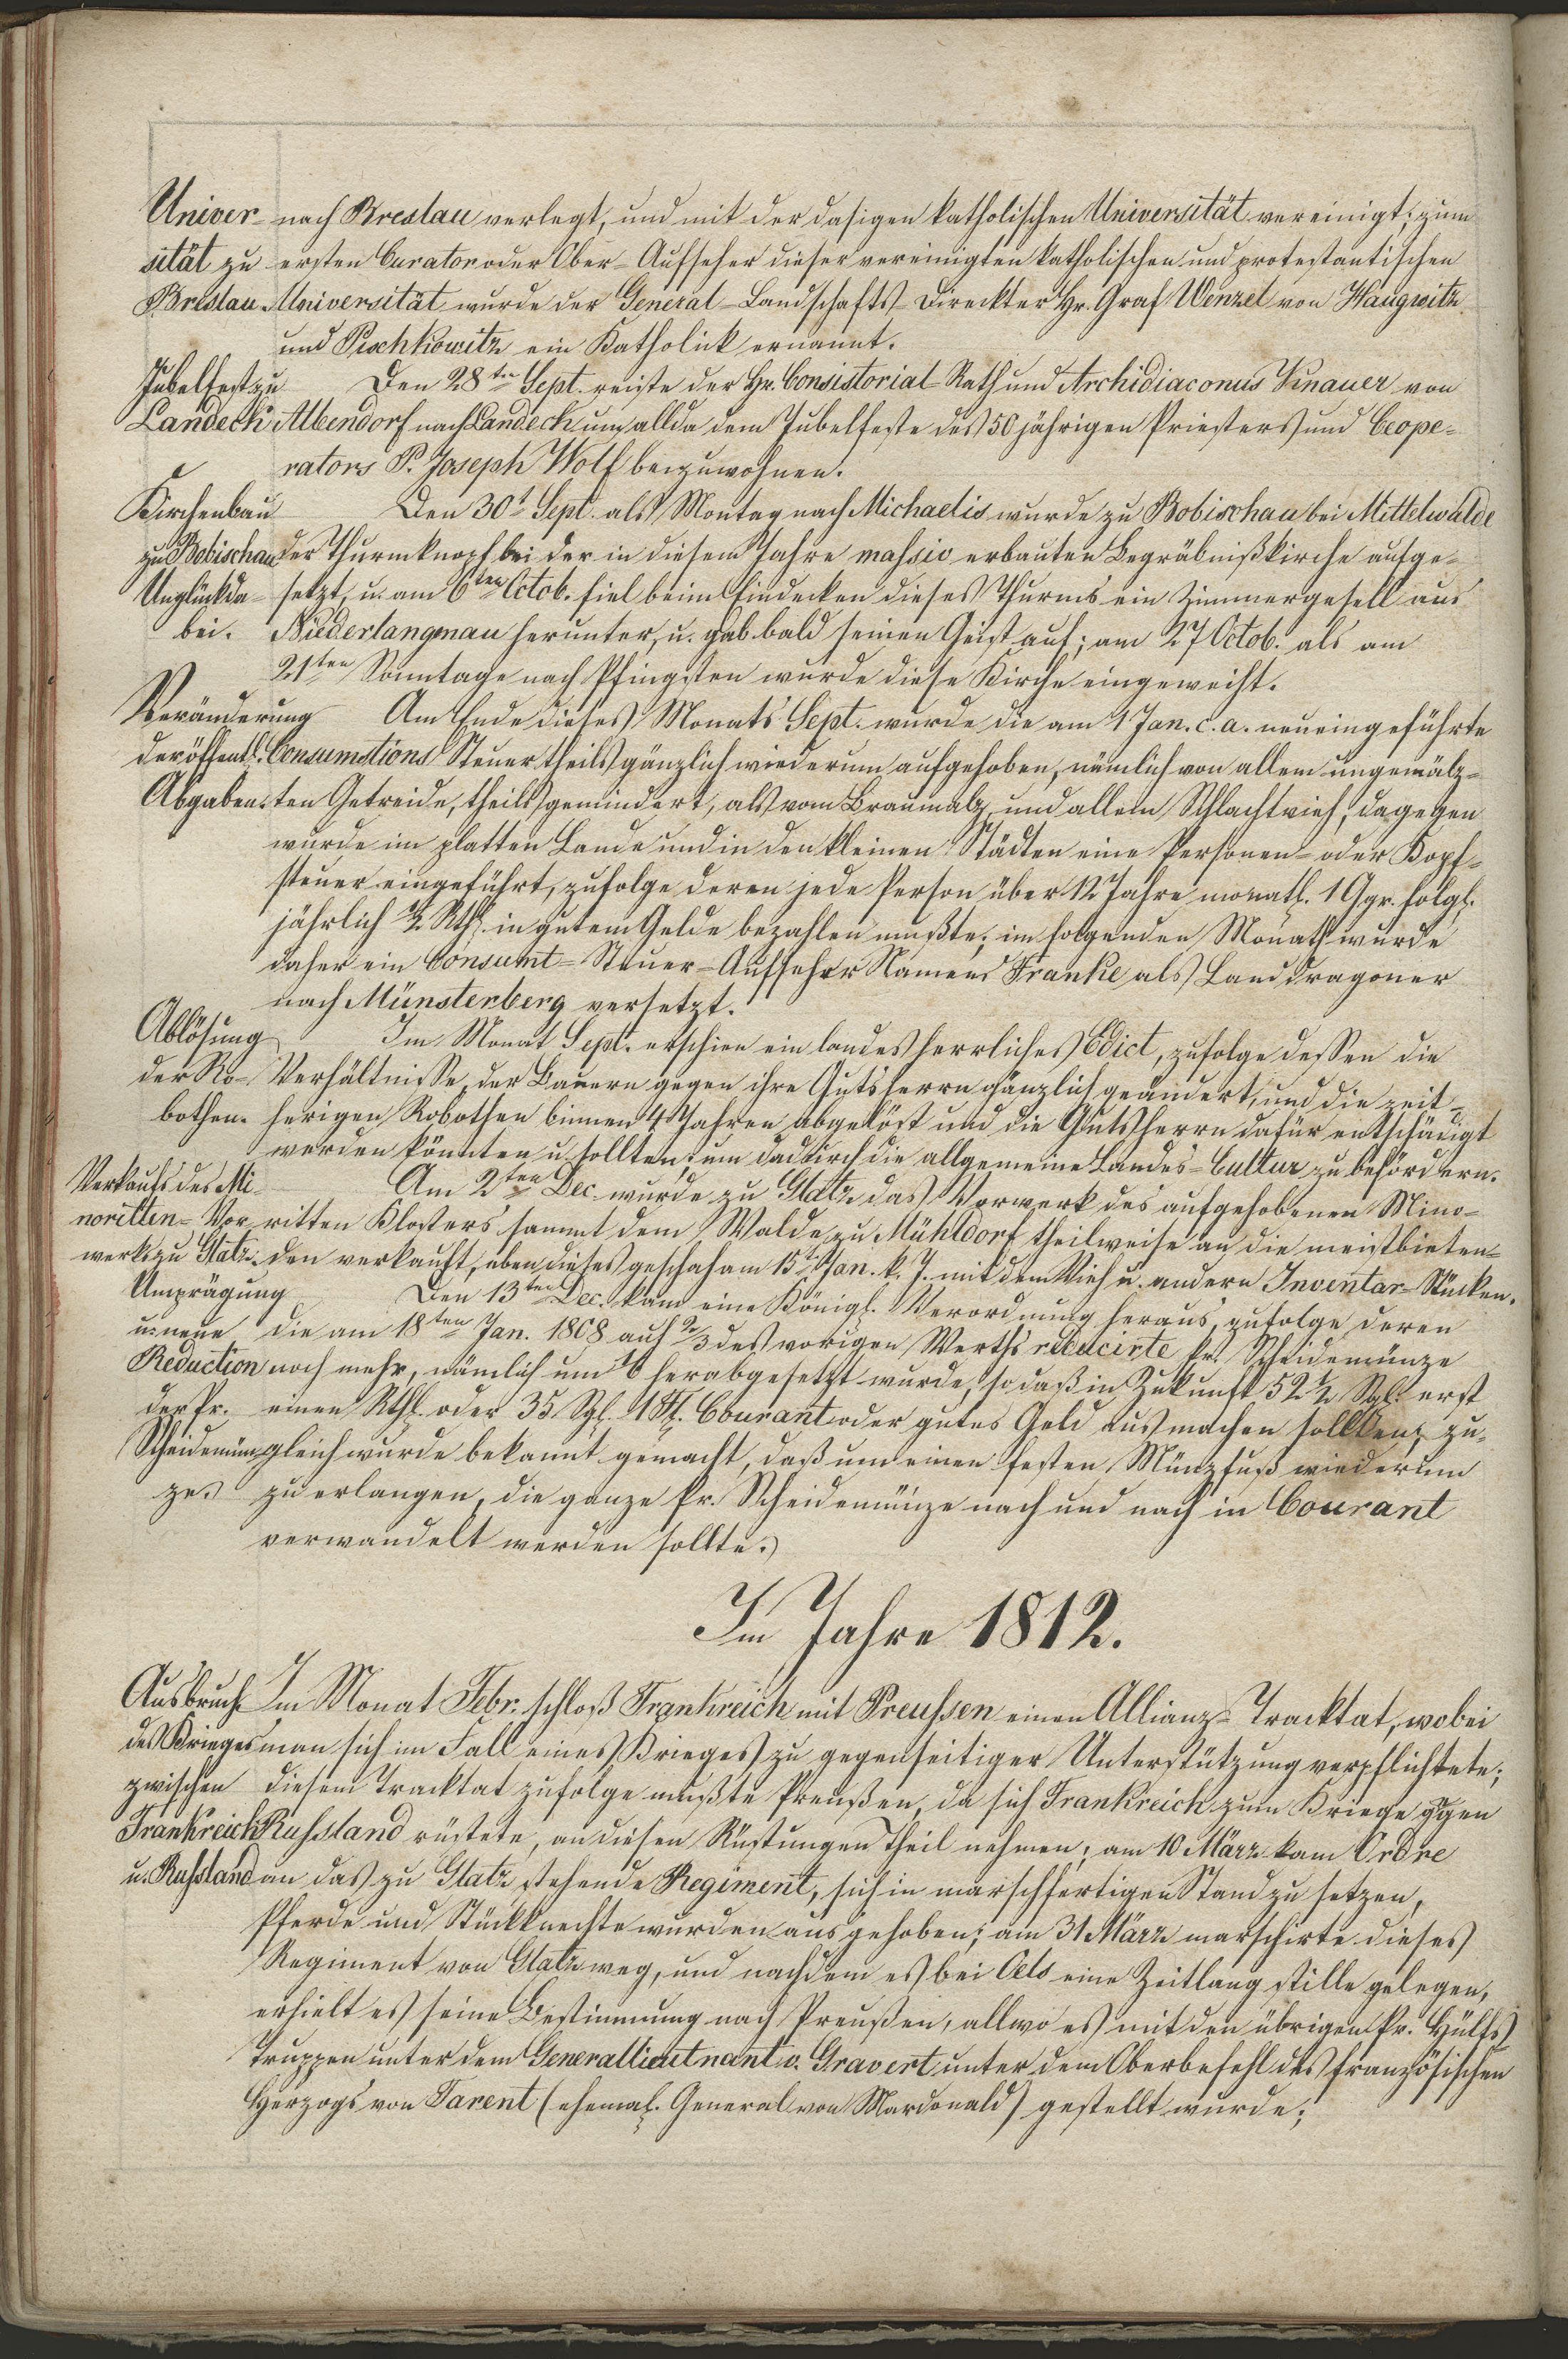 Univer- nach Breslau verlegt, und mit der dasigen katholischen Universität vereinigt; zum
sität zu ersten Curator oder Ober-Aufseher dieser vereinigten katholischen und protestantischen
Breslau. Universität wurde der General-Landschafts-Direckter Hr. Graf Wenzel von Haugwitz
und Pischkowitz ein Katholick ernannt.
Jubelfest zu Den 28ten Sept. reiste der Hr. Consistorial-Rath und Archidiaconus Knauer von
Landeck. Albendorf nach Landeck um allda dem Jubelfeste des 50 jährigen Priesters und Coope-
rators P. Joseph Wolf beizuwohnen.
Kirchenbau Den 30t Sept. als Montag nach Michaelis wurde zu Bobischau bei Mittelwalde
zu Bobischau der Thurmknopf bei der in diesem Jahre massiv erbauten Begräbnißkirche aufge-
Unglück da- setzt, u. am 6ten Octob. fiel beim Eindecken dieses Thurms ein Zimmergesell aus
bei. Niederlangenau herunter, u. gab bald seinen Geist auf; am 27 Octob. als am
21ten Sonntage nach Pfingsten wurde diese Kirche eingeweiht.
Veränderung Am Ende dieses Monats Sept. wurde die am 1 Jan. c. a. neueingeführte
der öffentl. Consumtions Steuer theils gänzlich wiederum aufgehoben, nämlich von allem ungemälz-
Abgaben. ten Getreide, theils gemindert, als vom Braumalz und allem Schlachtvieh, dagegen
wurde im platten Lande und in den kleinen Städten eine Personen- oder Kopf-
steuer eingeführt, zufolge deren jede Person über 12 Jahre monatl. 1 Ggr. folgl.
jährlich ½ Rthl. in gutem Gelde bezahlen mußte; im folgenden Monath wurde
daher ein Consumt-Steuer-Aufseher Namens Franke als Landdragoner
nach Münsterberg versetzt.
Ablösung Im Monat Sept. erschien ein landesherrliches Edict, zufolge dessen die
der Ro- Verhältnisse der Bauern gegen ihre Gutsherrn gänzlich geändert, und die zeit-
bothen. herigen Robothen binnen 4 Jahren abgelöst und die Gutsherrn dafür entschädigt
werden könnten u. sollten, um dadurch die allgemeine Landes-Cultur zu befördern.
Verkaufs des Mi- Am 2ten Dec. wurde zu Glatz das Vorwerk des aufgehobenen Mino-
noritten-Vor- ritten Klosters sammt dem Walde zu Mühldorf theilweise an die meistbieten-
werks zu Glatz. den verkauft, eben dieses geschah am 15t Jan. k. J. mit dem Vieh u. andern Inventar-Stücken.
Umprägung Den 13ten Dec. kam eine Königl. Verordnung heraus, zufolge deren
u. neue die am 18ten Jan. 1808 auf 2/3 des vorigen Werths reducirte Pr. Scheidemünze
Reduction noch mehr, nämlich um 1/6 herabgesetzt wurde, so daß in Zukunft 52 ½ Sgl. erst
der Pr. einen Rthl. oder 35 Sgl. 1 Fl. Courant oder gutes Geld ausmachen sollten; zu-
Scheidemün- gleich wurde bekannt gemacht, daß um einen festen Münzfuß wiederum
ze. zu erlangen, die ganze Pr. Scheidemünze nach und nach in Courant
verwandelt werden sollte.
Im Jahre 1812.
Ausbruch Im Monat Febr. schloß Frankreich mit Preussen einen Allianz-Tracktat, wobei
des Krieges man sich im Fall eines Krieges zu gegenseitiger Unterstützung verpflichtete;
zwischen diesem Tracktat zufolge mußte Preußen, da sich Frankreich zum Kriege gegen
Frankreich Russland rüstete, an diesen Rüstungen Theil nehmen; am 10 März kam Ordre
u. Russland an das zu Glatz stehende Regiment, sich in marschfertigen Stand zu setzen,
Pferde und Stückknechte wurden ausgehoben; am 31 März marschirte dieses
Regiment von Glatz weg, und nachdem es bei Oels eine Zeitlang stille gelegen,
erhielt es seine Bestimmung nach Preußen, allwo es mit den übrigen Pr. Hülfs
Truppen unter dem Generallieutnant v. Gravert unter dem Oberbefehl des französischen
Herzogs von Tarent (ehemal. General von Mardonald) gestellt wurde;